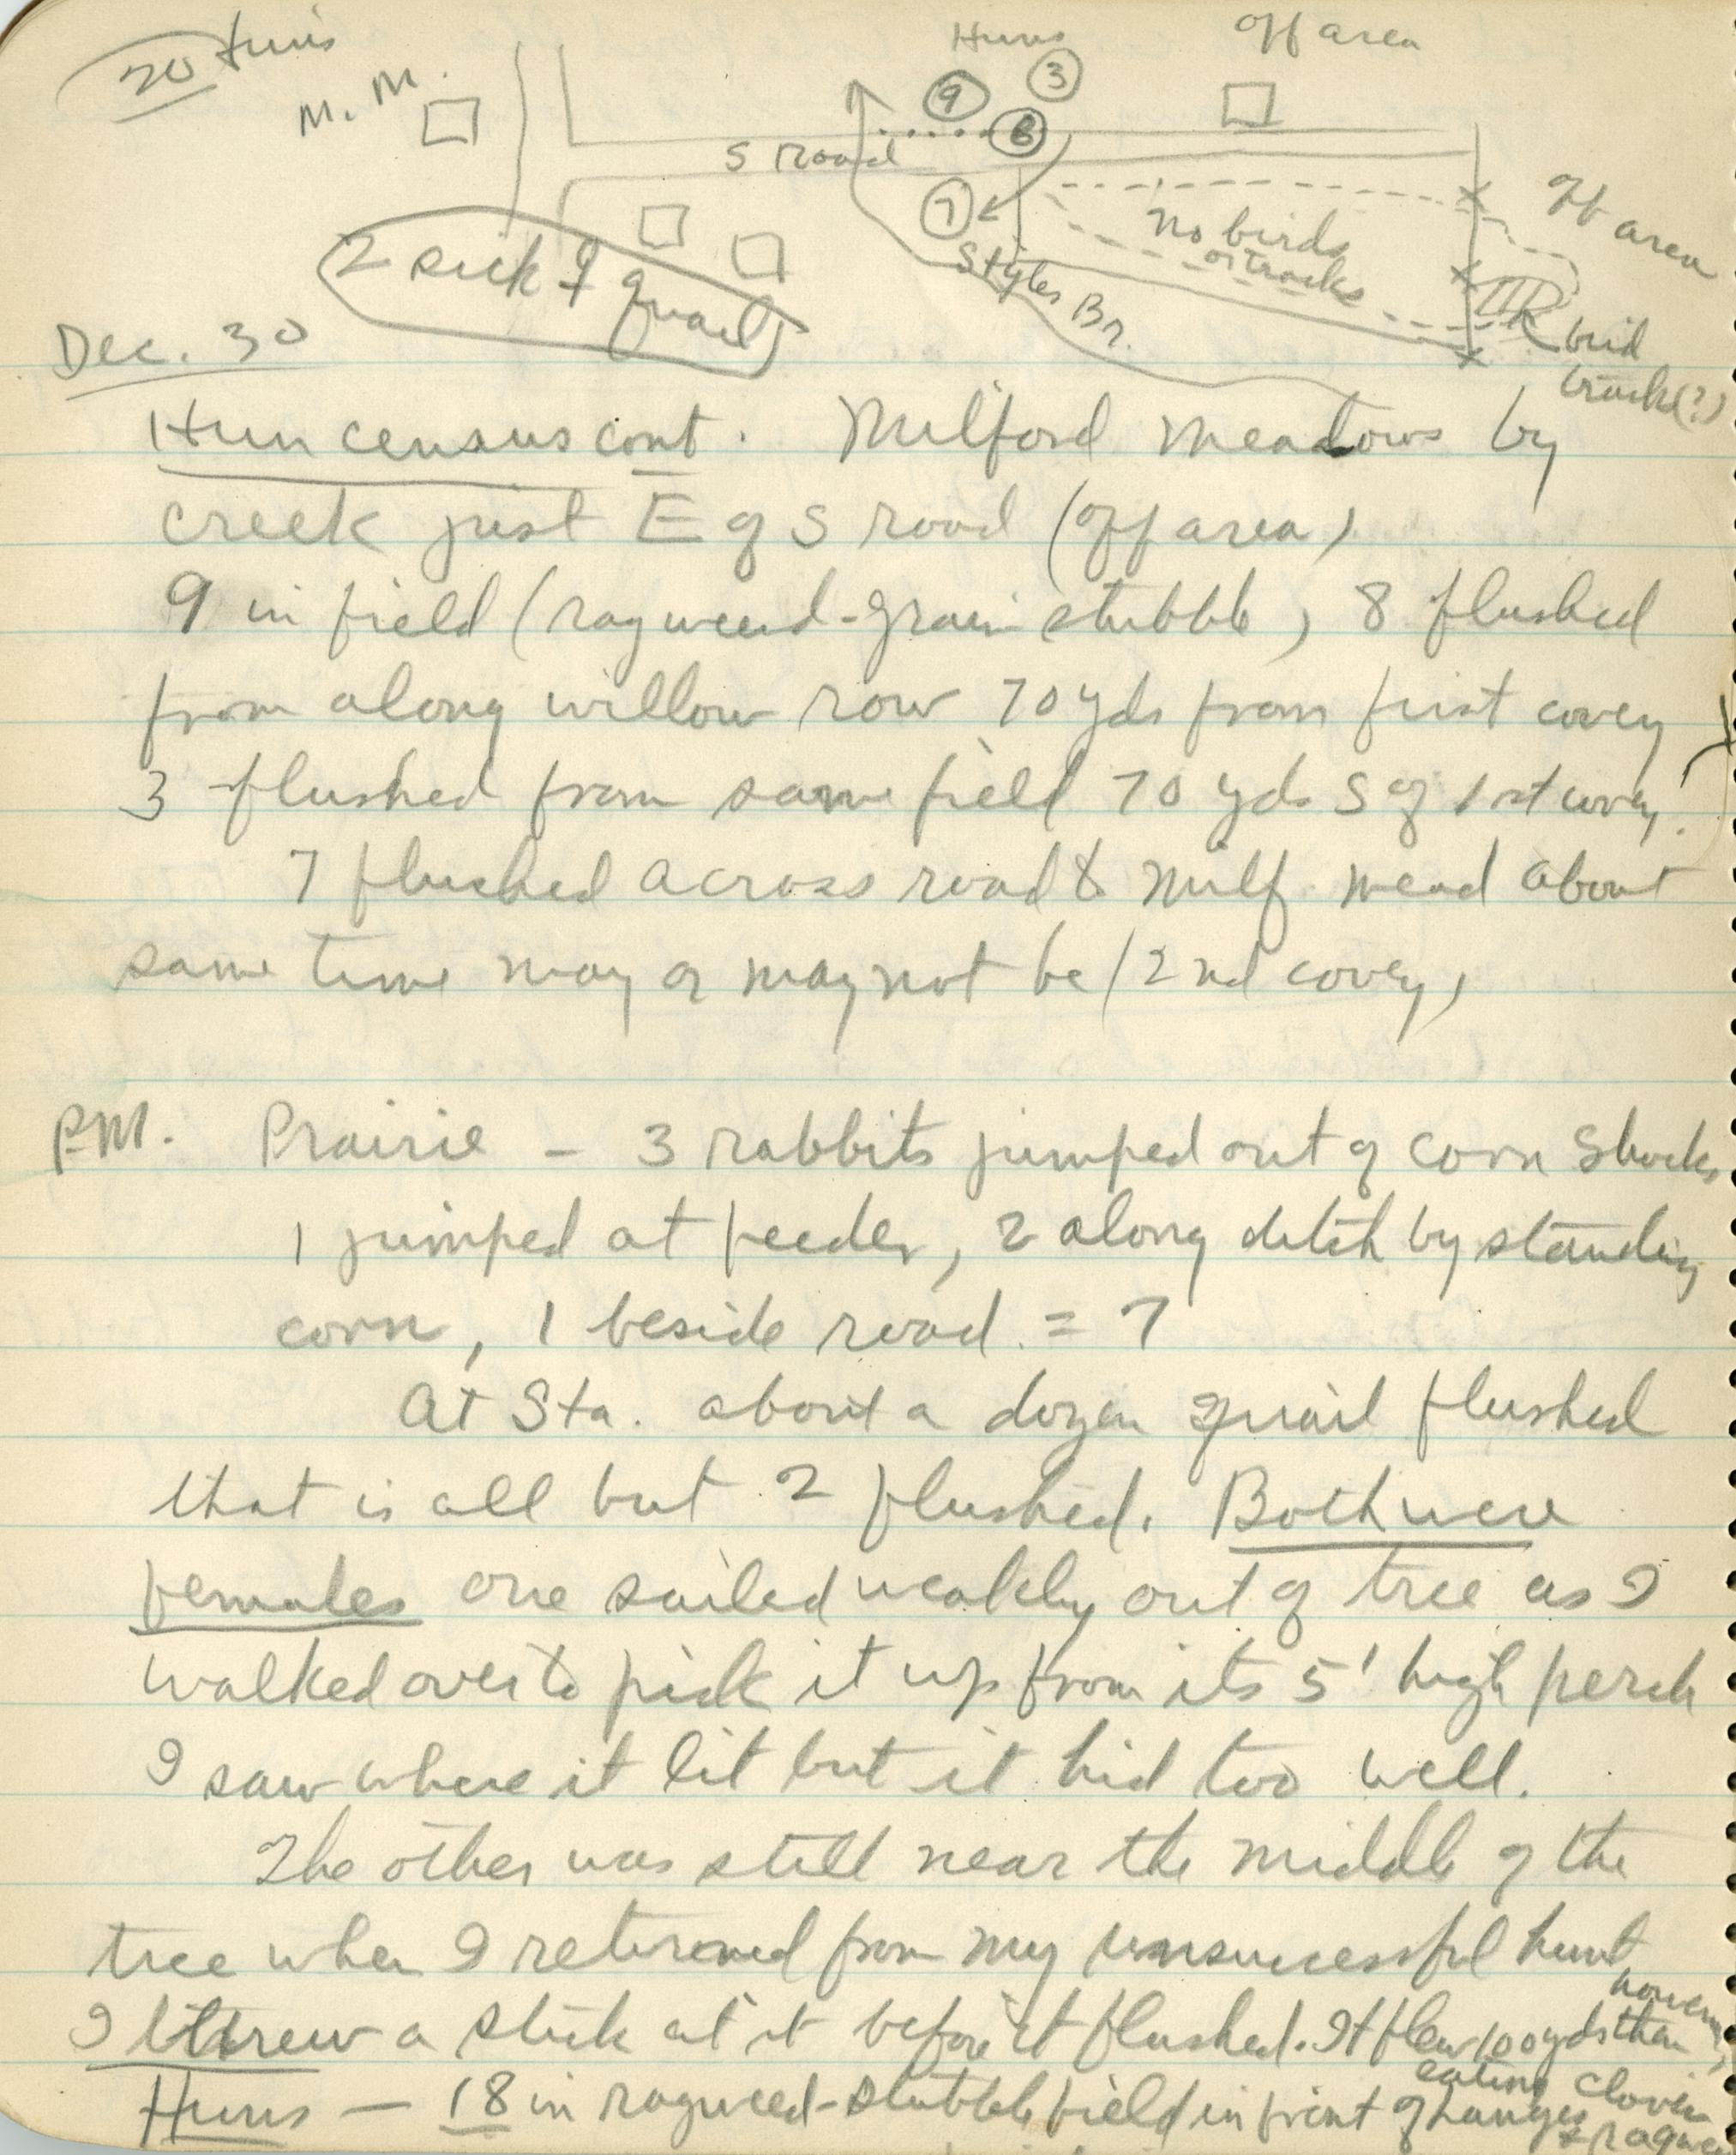 20 Huns
M. M.
Huns
off area
9
3
8
S road
7
Styles Br.
No birds
or tracks
off area
bird
track(?)
2 sick ♀ quail
Dec. 30
Hun census cont. Milford Meadows by
creek just E of S road (off area)
9 in field (ragweed-grain stubble) 8 flushed
from along willow row 70 yds from first covey
3 flushed from same field 70 yds S of 1st covey.
7 flushed across road & Milf. Mead about
same time may or may not be (2nd covey)
P.M. Prairie - 3 rabbits jumped out of corn shocks
1 jumped at feeder, 2 along ditch by standing
corn, 1 beside road. = 7
At Sta. about a dozen quail flushed
that is all but 2 flushed. Both were
females one sailed weakly out of tree as I
walked over to pick it up from its 5' high perch
I saw where it lit but it hid too well.
The other was still near the middle of the
tree when I returned from my unsuccessful hunt
I threw a stick at it before it flushed. It flew 100 yds than
however
eating clover
Huns — 18 in ragweed-stubble field in front of